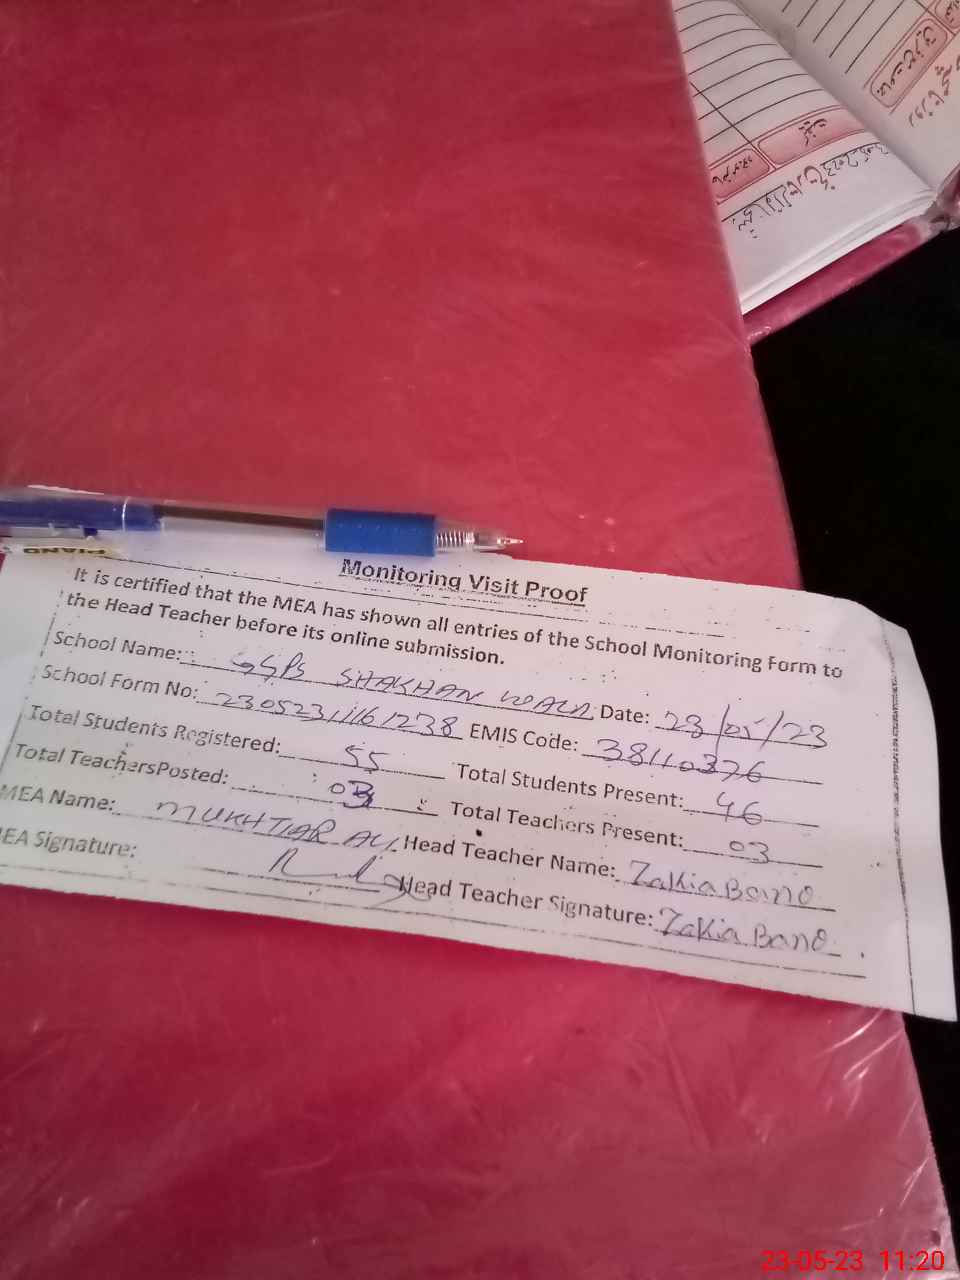 PIANO
Monitoring Visit Proof
It is certified that the MEA has shown all entries of the School Monitoring Form to
the Head Teacher before its online submission.
School Name: GGPS SHAKHAN WALA Date: 23/05/23
School Form No: 230523111161238 EMIS Code: 38110376
Total Students Registered: 55 Total Students Present: 46
Total TeachersPosted: 03 Total Teachers Present: 03
MEA Name: MUKHTIAR ALI Head Teacher Name: Zakia Bano
MEA Signature: Head Teacher Signature: Zakia Bano
23-05-23 11:20